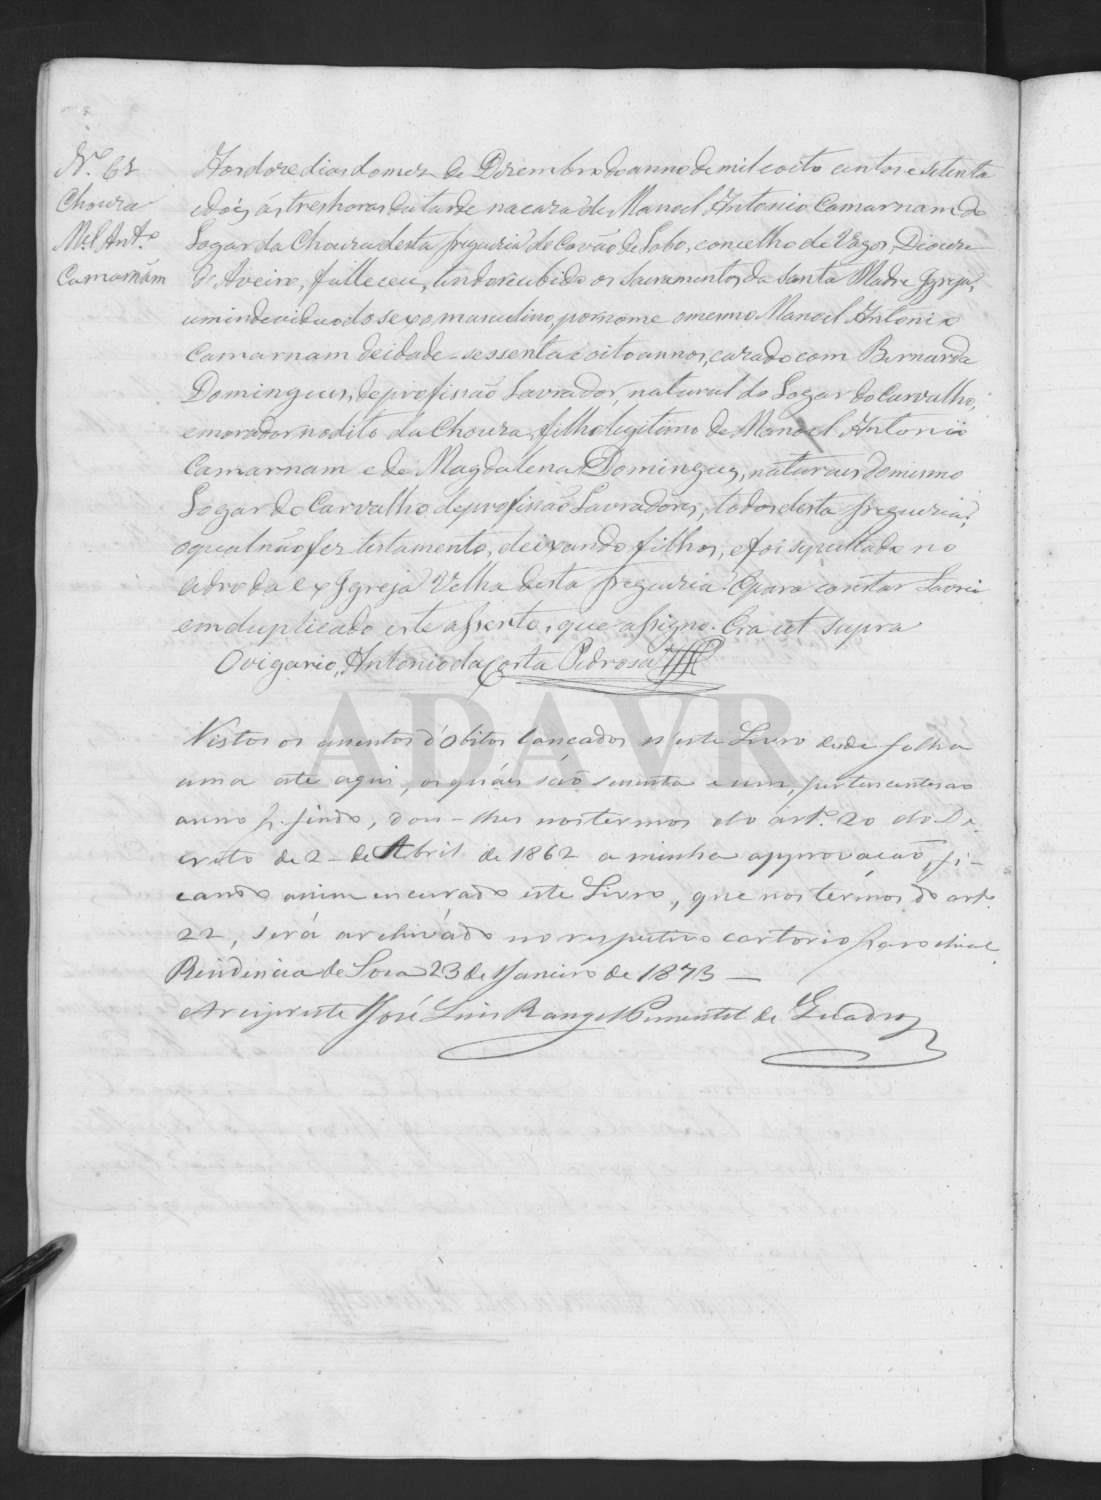 Nº. 61
Choura
Mel. Antº.
Camarnam
Aos doze dias do mez de Dezembro do anno de mil e oito centos e setenta
e dois, as tres horas da tarde na caza de Manoel Antonio Camarnam do
Logar da Choura desta freguezia de Covão de Lobo, concelho de Vagos, Diocese
de Aveiro, falleceu, tendo recebido os Sacramentos da Santa Madre Igreja,
um individuo do sexo masculino, por nome o mesmo Manoel Antonio
Camarnam de idade sessenta e oito annos, cazado com Bernarda
Domingues, de profissão Lavrador, natural do Logar do Carvalho,
e morador no dito da Choura, filho legitimo de Manoel Antonio
Camarnam e de Magdalena Domingues, naturaes do mesmo
Logar do Carvalho de profissão Lavradores, todos desta freguezia;
o qual não fez testamento, deixando filhos, e foi sepultado no
adro da ex Igreja Velha desta freguezia. E para constar lavrei
em duplicado este assento, que assigno. Era ut supra
O vigario, Antonio da Costa Pedrosa
Vistos os assentos d'Obitos lançados n'este Livro desde folha
uma até aqui, os quáes são sessenta e um, pertencentes ao
anno p. findo, dou-lhes nos termos do artº. 20 do De-
creto de 2 de Abril de 1862 a minha approvação, fi-
cando assim encerrado este Livro, que nos termos do artº.
22, será archivádo no respectivo cartorio parochial.
Residencia de Soza 23 de Janeiro de 1873 —
O Arcipreste José Luis Rangel Pimentel de Quadros
ADAVR